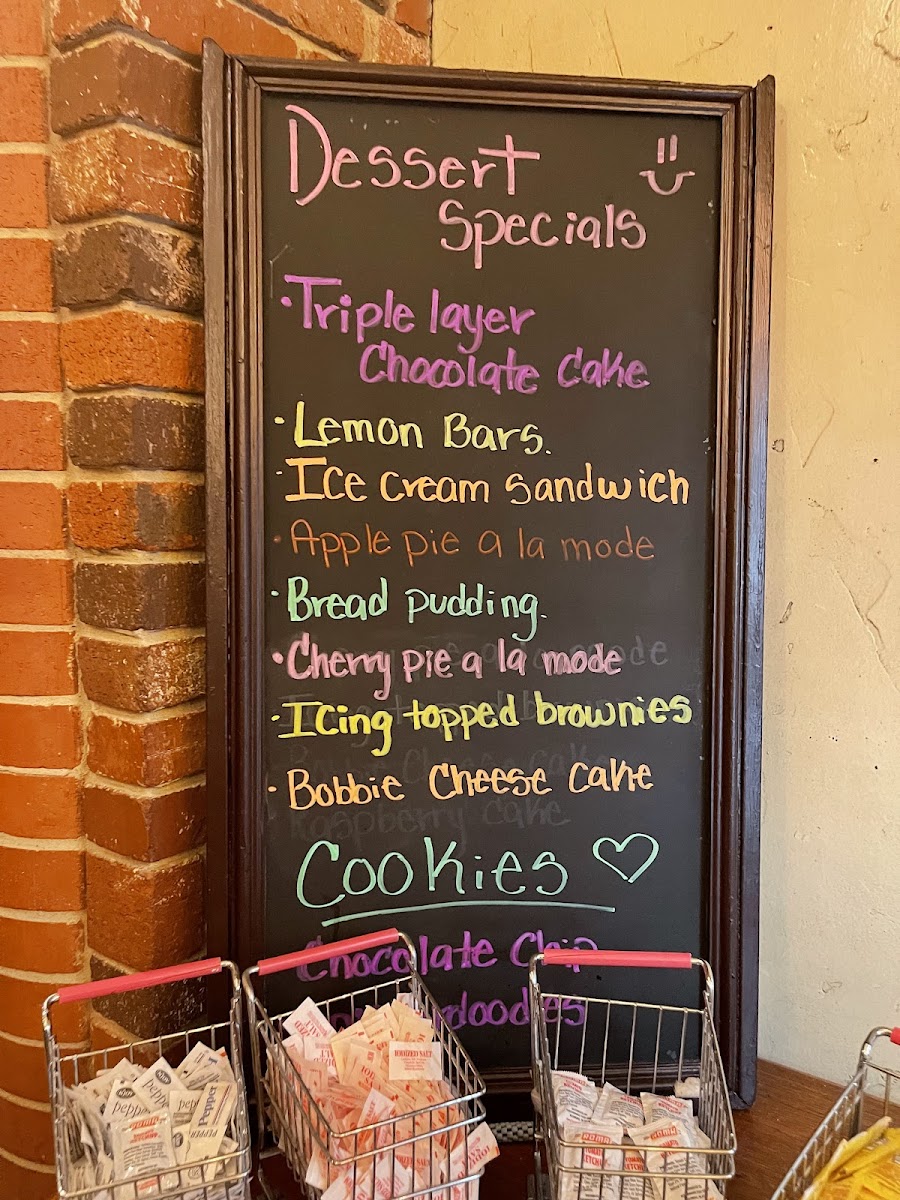 Dessert
Specials
• Triple layer
Chocolate Cake
• Lemon Bars.
• Ice Cream Sandwich
• Apple pie a la mode
• Bread pudding.
• Cherry pie a la mode
• Icing topped brownies
• Bobbie Cheese Cake
Raspberry cake
Cookies
Chocolate Chip
IODIZED SALT
pepper
pepper
PEPPER